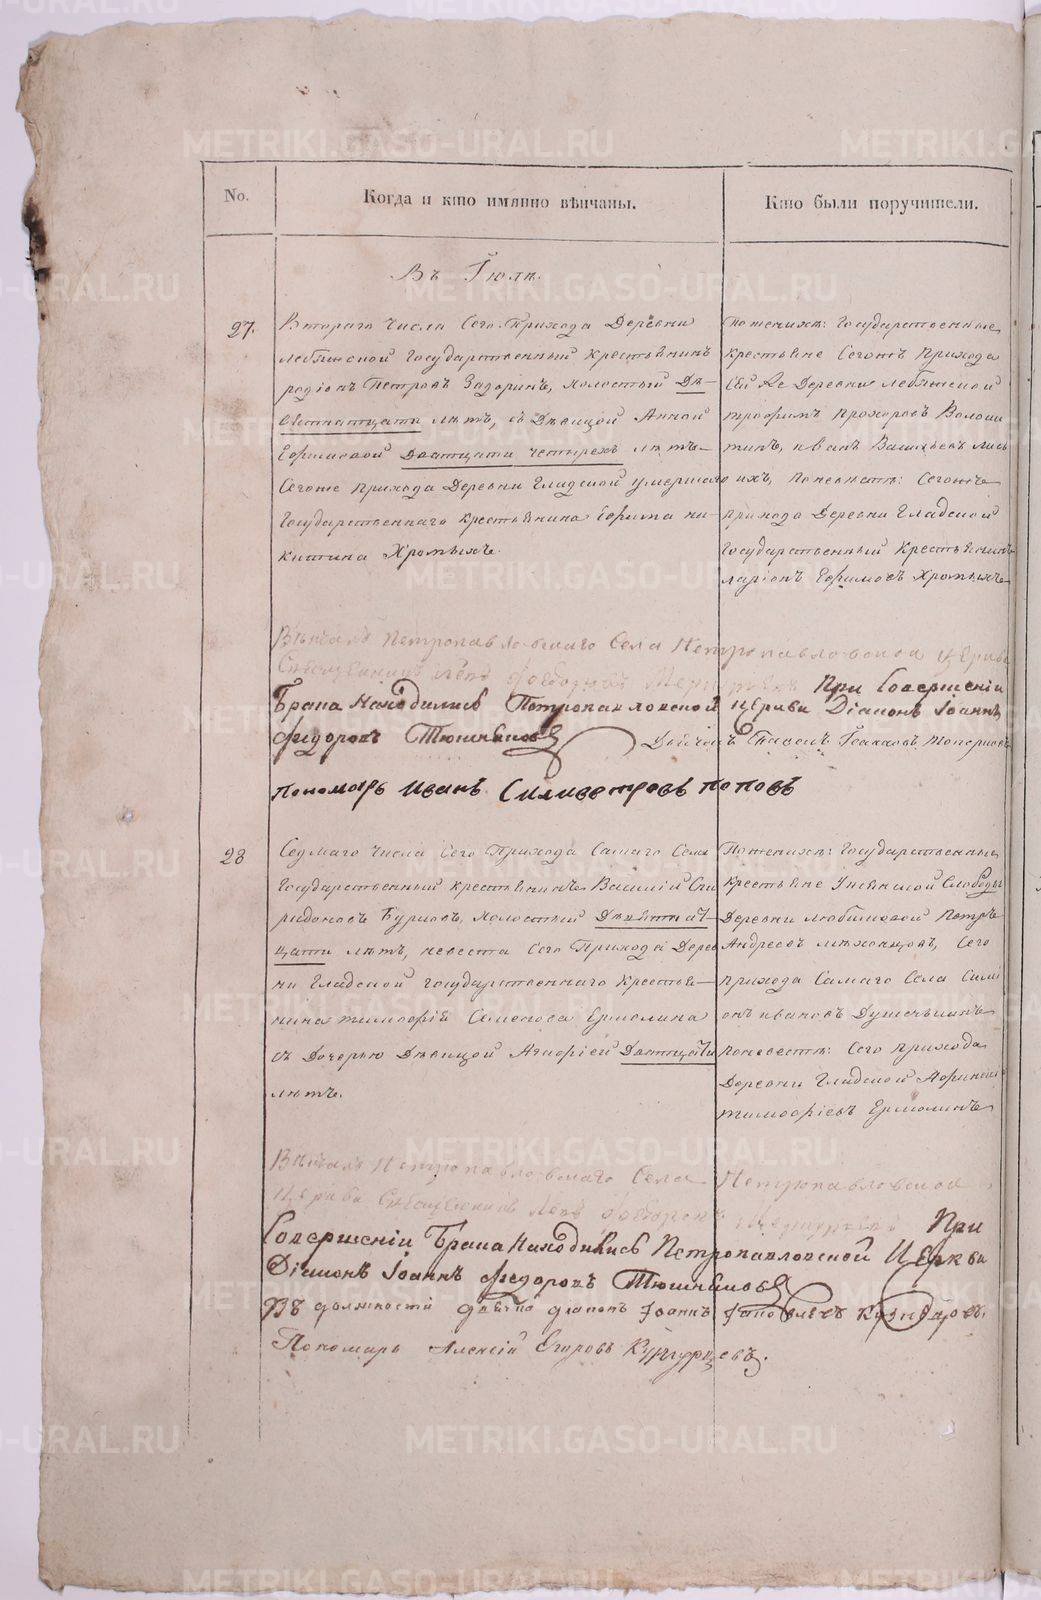 No.
Когда и кто имянно вѣнчаны.
Кто были поручители.
Въ Іюлѣ.
27.
Втораго числа Сего Прихода Деревни
Лебяжской государственный крестьянинъ
родіонъ Петровъ Задоринъ, холостый Де-
вятнатцати лѣтъ, съ Дѣвицой Анной
Ефимовой Дватцати четырехъ лѣтъ
Сегоже прихода Деревни Гладской умершаго
государственнаго крестьянина Ефима ни-
китина Хромыхъ.
Поженихѣ: Государственные
крестьяне Сегожъ Прихода
Деревни Лебяжской
трофимъ Прохоровъ Волоши
тинъ, иванъ Васильевъ лиси
ихъ, Поневѣстѣ: Сегожъ
прихода Деревни Гладской
государственный Крестьянинъ
ларіонъ Ефимовъ Хромыхъ
Вѣнчалъ Петропавловскаго Села Петропавловской церкви
Священникъ При Совершеніи
Брака Находились Петропавловской церкви Діаконъ Іоаннъ
Федоровъ Тюшняковъ Дьячекъ Павелъ Іоанновъ Топорковъ
Пономарь Иванъ Силивестровъ поповъ
28
Седмаго числа Сего Прихода Самаго Села
Государственный крестьянинъ Василій Спи
ридоновъ Бурковъ, холостый Девятнат-
цати лѣтъ, невеста Сего Прихода Дерев
ни Гладской государственнаго крестья-
нина тимофѣй Семенова Ермолина
съ Дочерью Дѣвицой Дватцати
лѣтъ.
Поженихѣ: государственные
крестьяне Слободы
Деревни Любимовой Петръ
Андреевъ Сего
прихода Самаго Села Симі
онъ ивановъ
Поневестѣ: Сего прихода
Деревни Гладской
тимофѣевъ Ермолинъ
Вѣнчалъ Петропавловскаго Села Петропавловской
Церкви Священникъ При
Совершеніи Брака Находились Петропавловской Церкви
Діаконъ Іоаннъ Федоровъ Тюшняковъ
Въ должности дьячка діаконъ Іоаннъ Яковлевъ Кузнецовъ
Пономарь Алексій Егоровъ Кунгурцевъ.